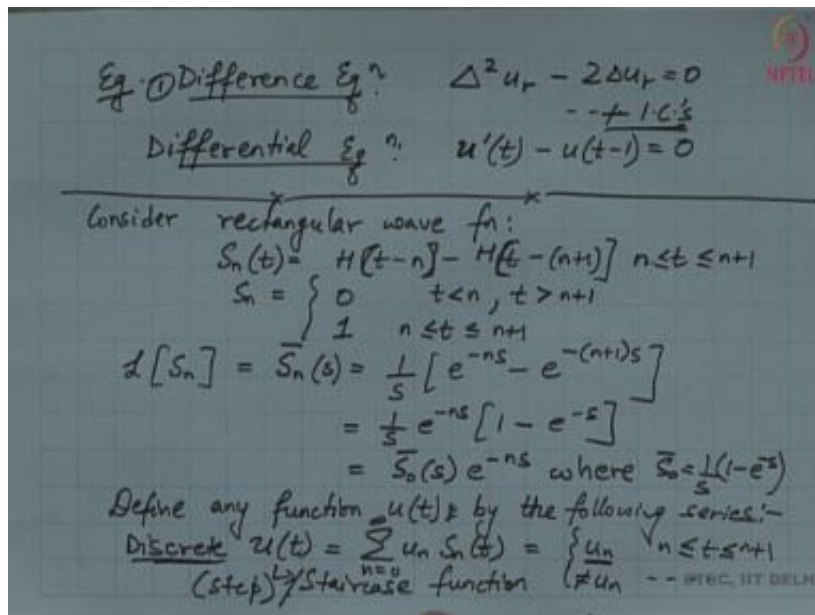 Eg. ① Difference Eqⁿ: Δ²uᵣ − 2Δuᵣ = 0
NPTEL
-- + I.C.'s
Differential Eqⁿ: u'(t) − u(t−1) = 0
Consider rectangular wave fn:
Sₙ(t) = H[t−n] − H[t−(n+1)] n ≤ t ≤ n+1
Sₙ = { 0 t<n, t>n+1
1 n ≤ t ≤ n+1
ℒ[Sₙ] = S̄ₙ(s) = 1/s [e^{-ns} − e^{-(n+1)s}]
= 1/s e^{-ns} [1 − e^{-s}]
= S̄₀(s) e^{-ns} where S̄₀ = 1/s (1−e^{-s})
Define any function u(t) by the following series:-
Discrete u(t) = ∑_{n=0}^{∞} uₙ Sₙ(t) = { uₙ n ≤ t ≤ n+1
(step) ↳/Staircase function ≠uₙ -- ETSC, IIT DELH